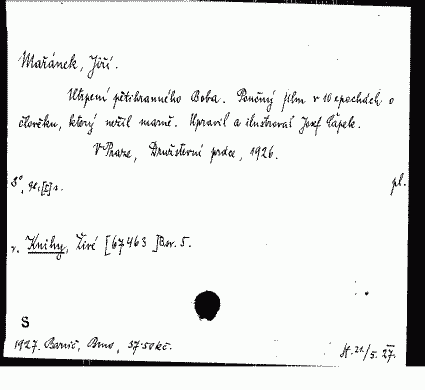 Mařánek, Jiří.
Utrpení pětihranného Boba. Poučný film v 10 epochách o
člověku, který nežil marně. Upravil a ilustroval Josef Čapek.
V Praze, Družstevní práce, 1926.
8°, pl.
v. Knihy, Živé [67463] Roč. 5.
S
1927. Barvič, Brno, 37·50 Kč. H. 21/5. 27.